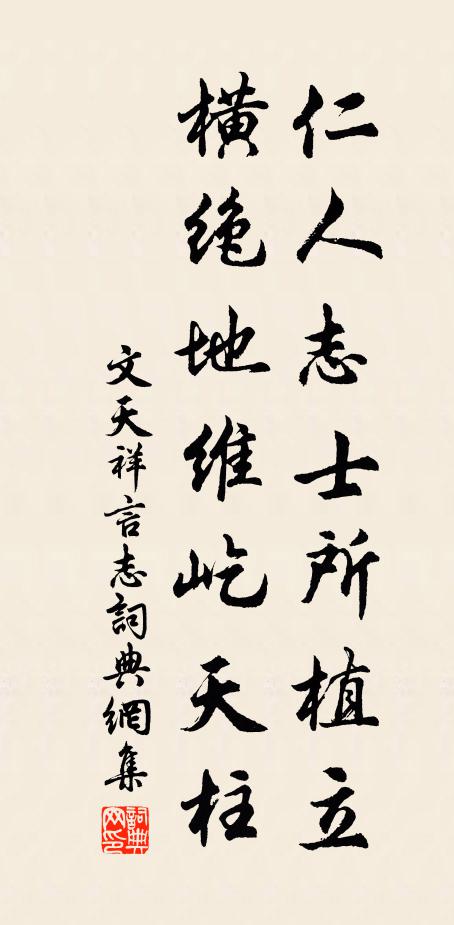 仁人志士所植立
橫絶地維屹天柱
文天祥言志詞典網集
詞典网印